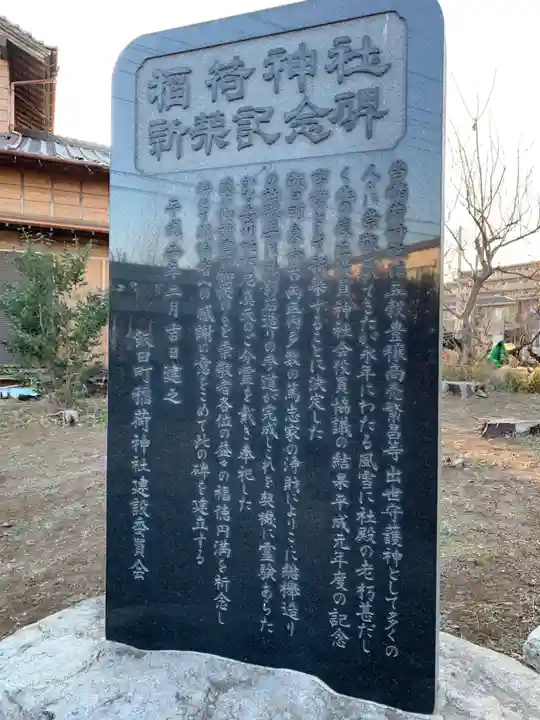 稲荷神社
新築記念碑
当稲荷神社は五穀豊穣商売繁昌等出世守護神として多くの
人々に崇敬されてきたが永年にわたる風雪に社殿の老朽甚だし
くこの度町役員神社会役員協議の結果平成元年度の記念
事業として新築することに決定した
飯田町
両町内多数の篤志家の浄財によりここに総欅造り
の社殿並に
造りの参道が完成これを契機に霊験あらた
かな
のご分霊を戴き奉祀した
崇敬者各位の益々の福徳円満を祈念し
への感謝の意をこめて此の碑を建立する
平成二年二月吉日建之
飯田町稲荷神社建設委員会